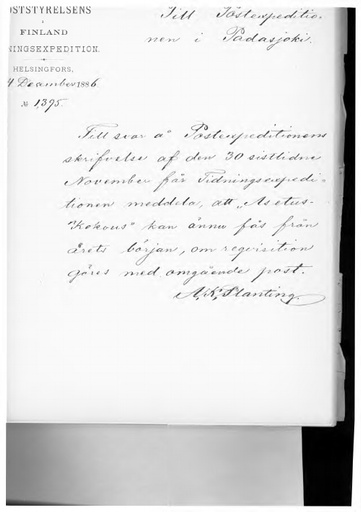 OSTSTYRELSENS
I
FINLAND
NINGSEXPEDITION.
HELSINGFORS,
4 December 1886
№ 1395.
Till Postexpeditio-
nen i Padasjoki.
Till svar å Postexpeditionens
skrifvelse af den 30 sistlidne
November får Tidningsexpedi-
tionen meddela, att „Asetus-
Kokous" kan ännu fås från
årets början, om reqvisition
göres med omgående post.